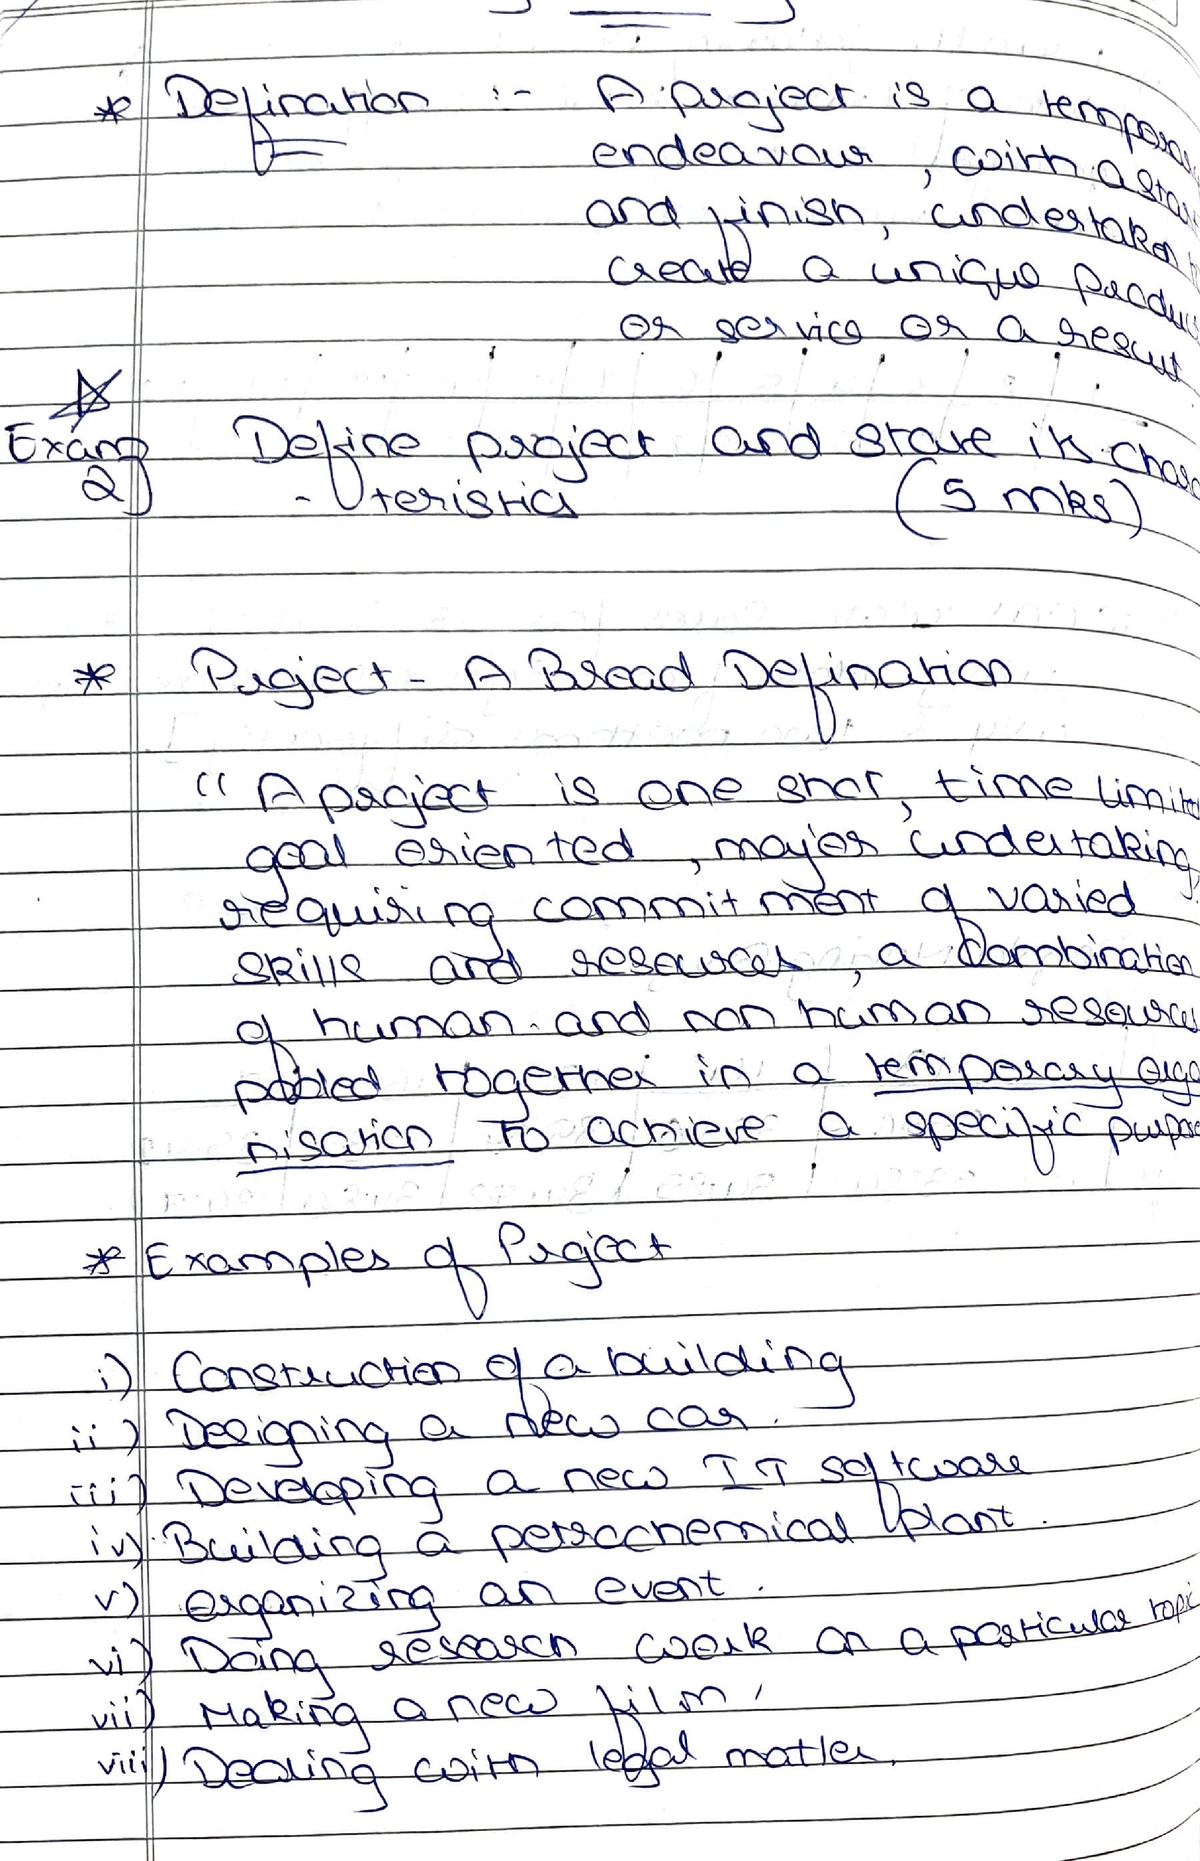 * Defination :- A project is a temporar
endeavour, with a star
and finish, undertaken t
create a unique produc
or service or a result
Exam
Q) Define project and state its charac
- teristics (5 mks)
* Project - A Broad Defination
" A project is one shot, time limite
goal oriented, major undertaking,
requiring commitment of varied
skills and resources, a combination
of human and non human resources
pooled together in a temporary orga
nisation to achieve a specific purpos
* Examples of Project
i) Construction of a building
ii) Designing a new car.
iii) Developing a new IT software
iv) Building a petrochemical plant.
v) organizing an event.
vi) Doing research work on a particular topi
vii) Making a new film,
viii) Dealing with legal matter.